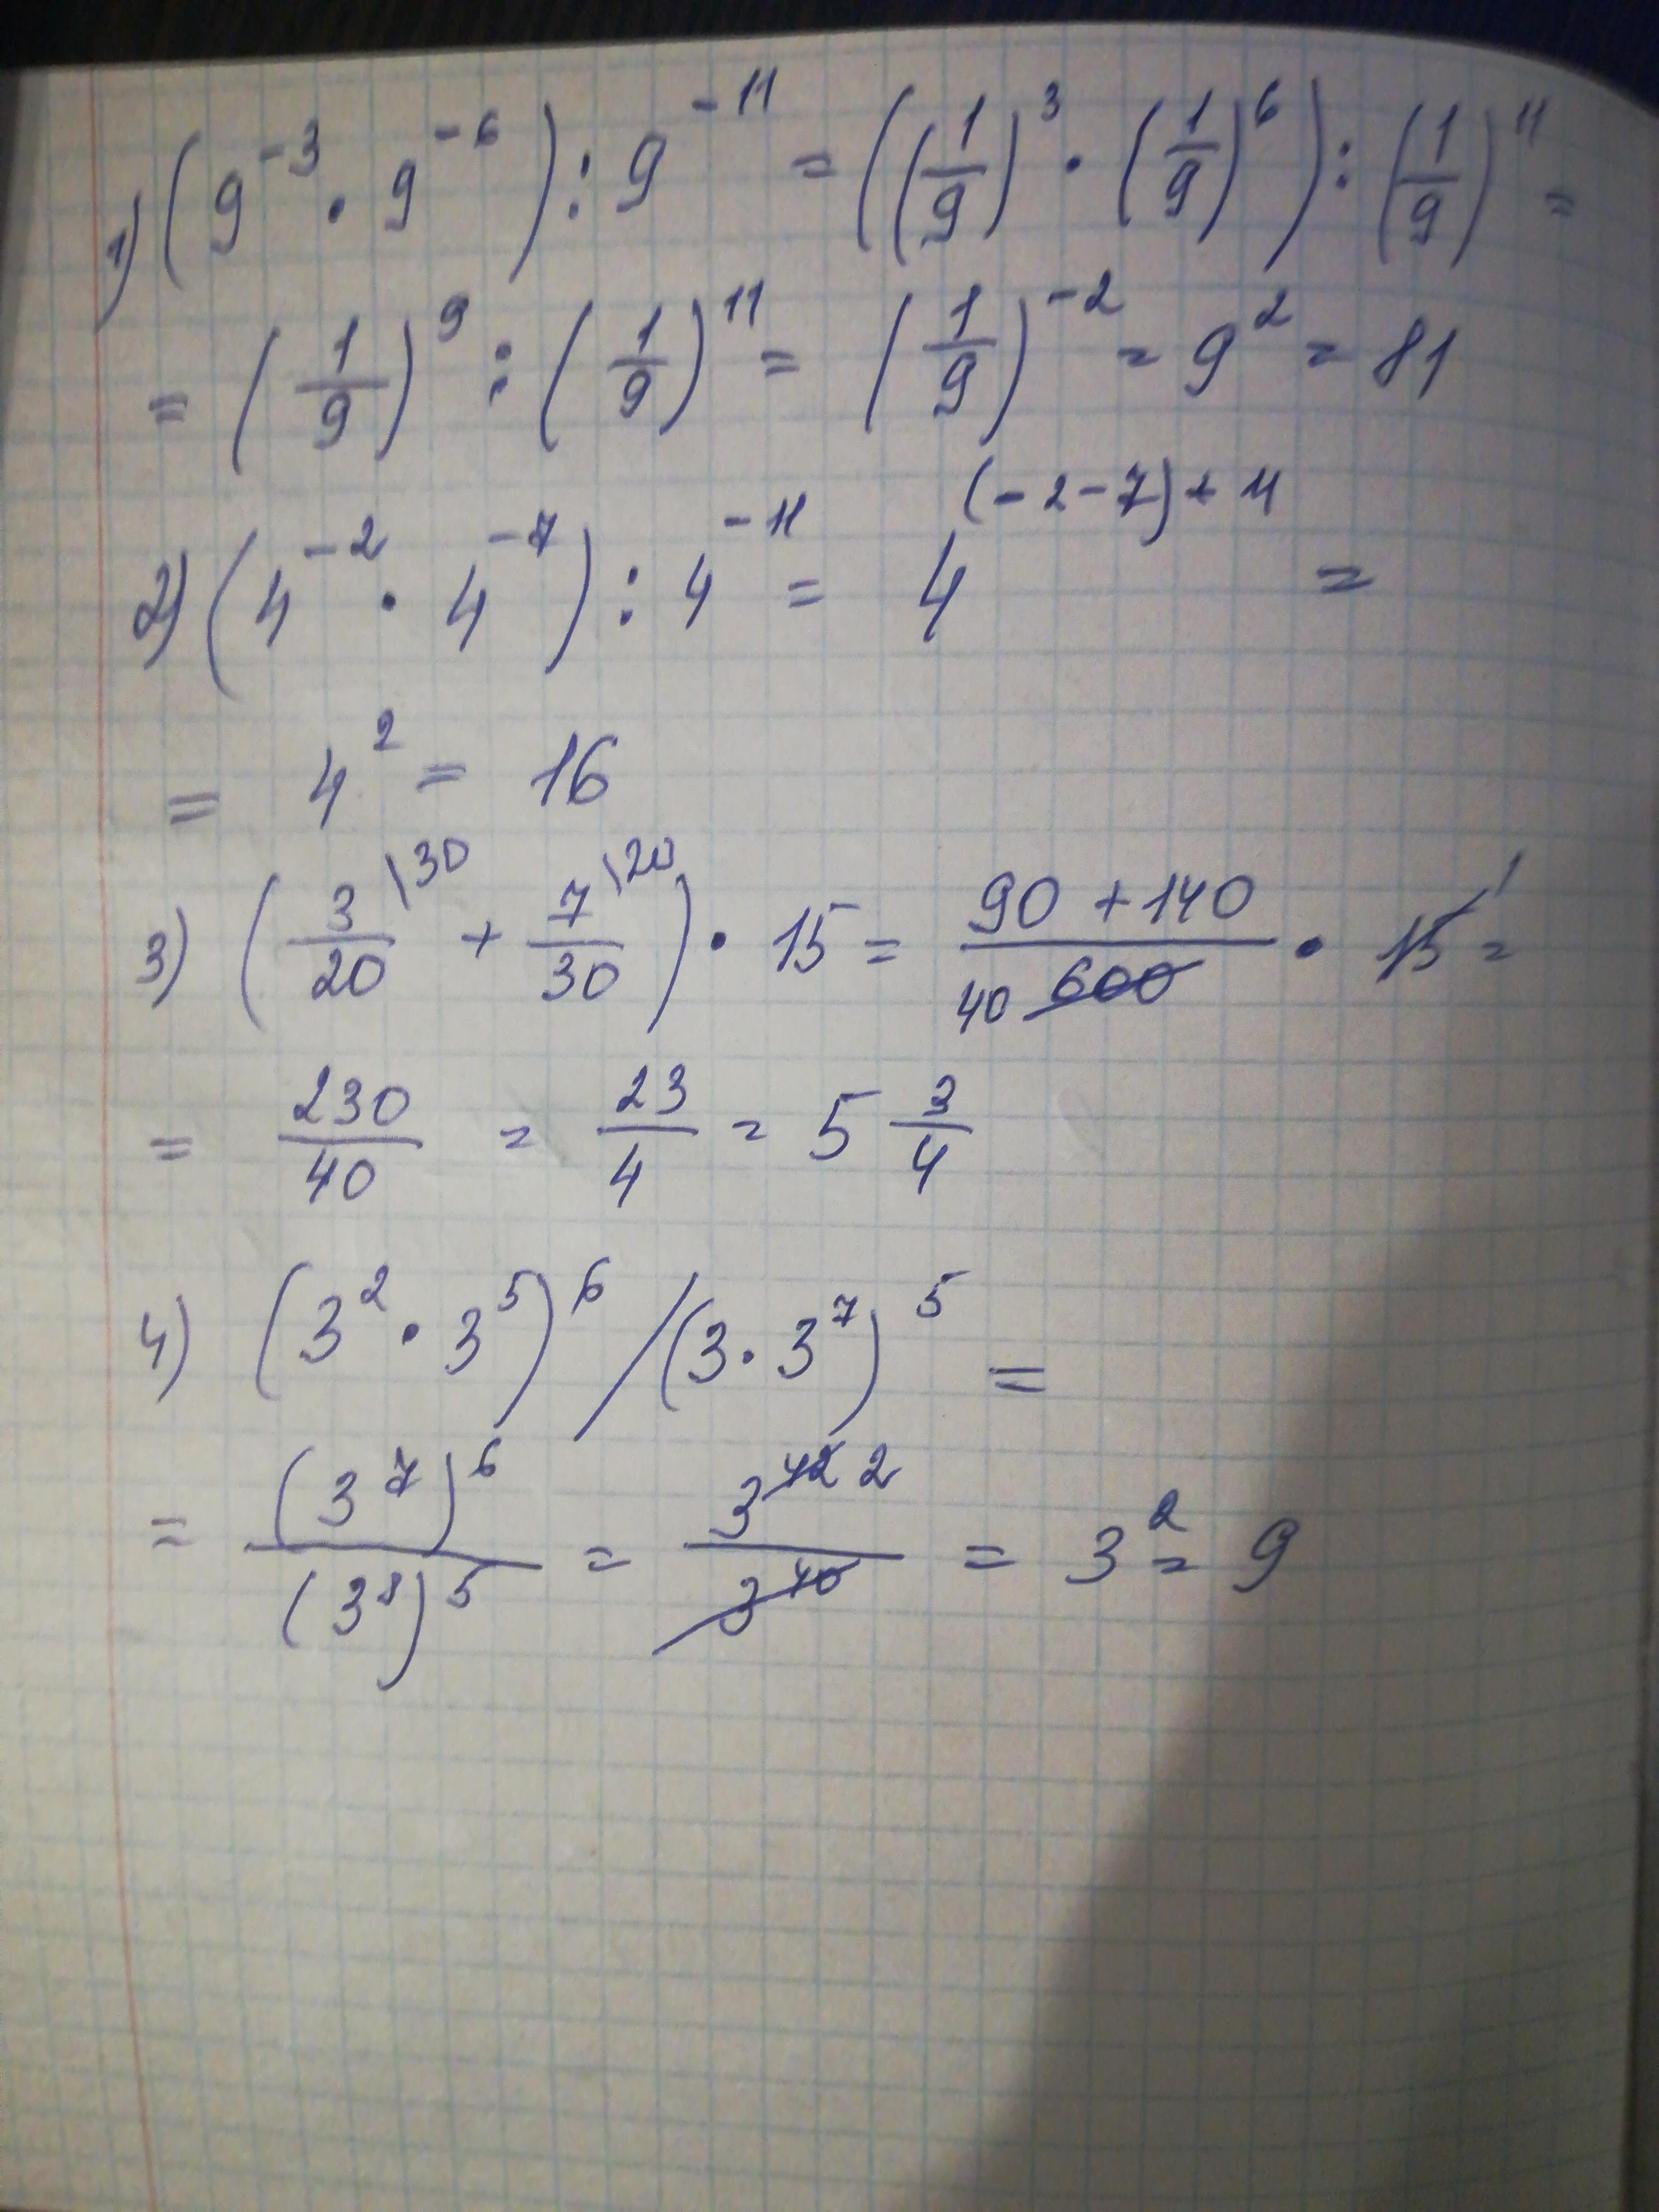 1) (9^{-3} · 9^{-6}) : 9^{-11} = ((1/9)^3 · (1/9)^6) : (1/9)^{11} =
= (1/9)^9 : (1/9)^{11} = (1/9)^{-2} = 9^2 = 81
2) (4^{-2} · 4^{-7}) : 4^{-11} = 4^{(-2-7)+11} =
= 4^2 = 16
3) (3/20 \30 + 7/30 \20) · 15 = (90 + 140)/(40 600) · 15 1 =
= 230/40 = 23/4 = 5 3/4
4) (3^2 · 3^5)^6 / (3 · 3^7)^5 =
= (3^7)^6/(3^8)^5 = 3^{42} 2/3^{40} = 3^2 = 9